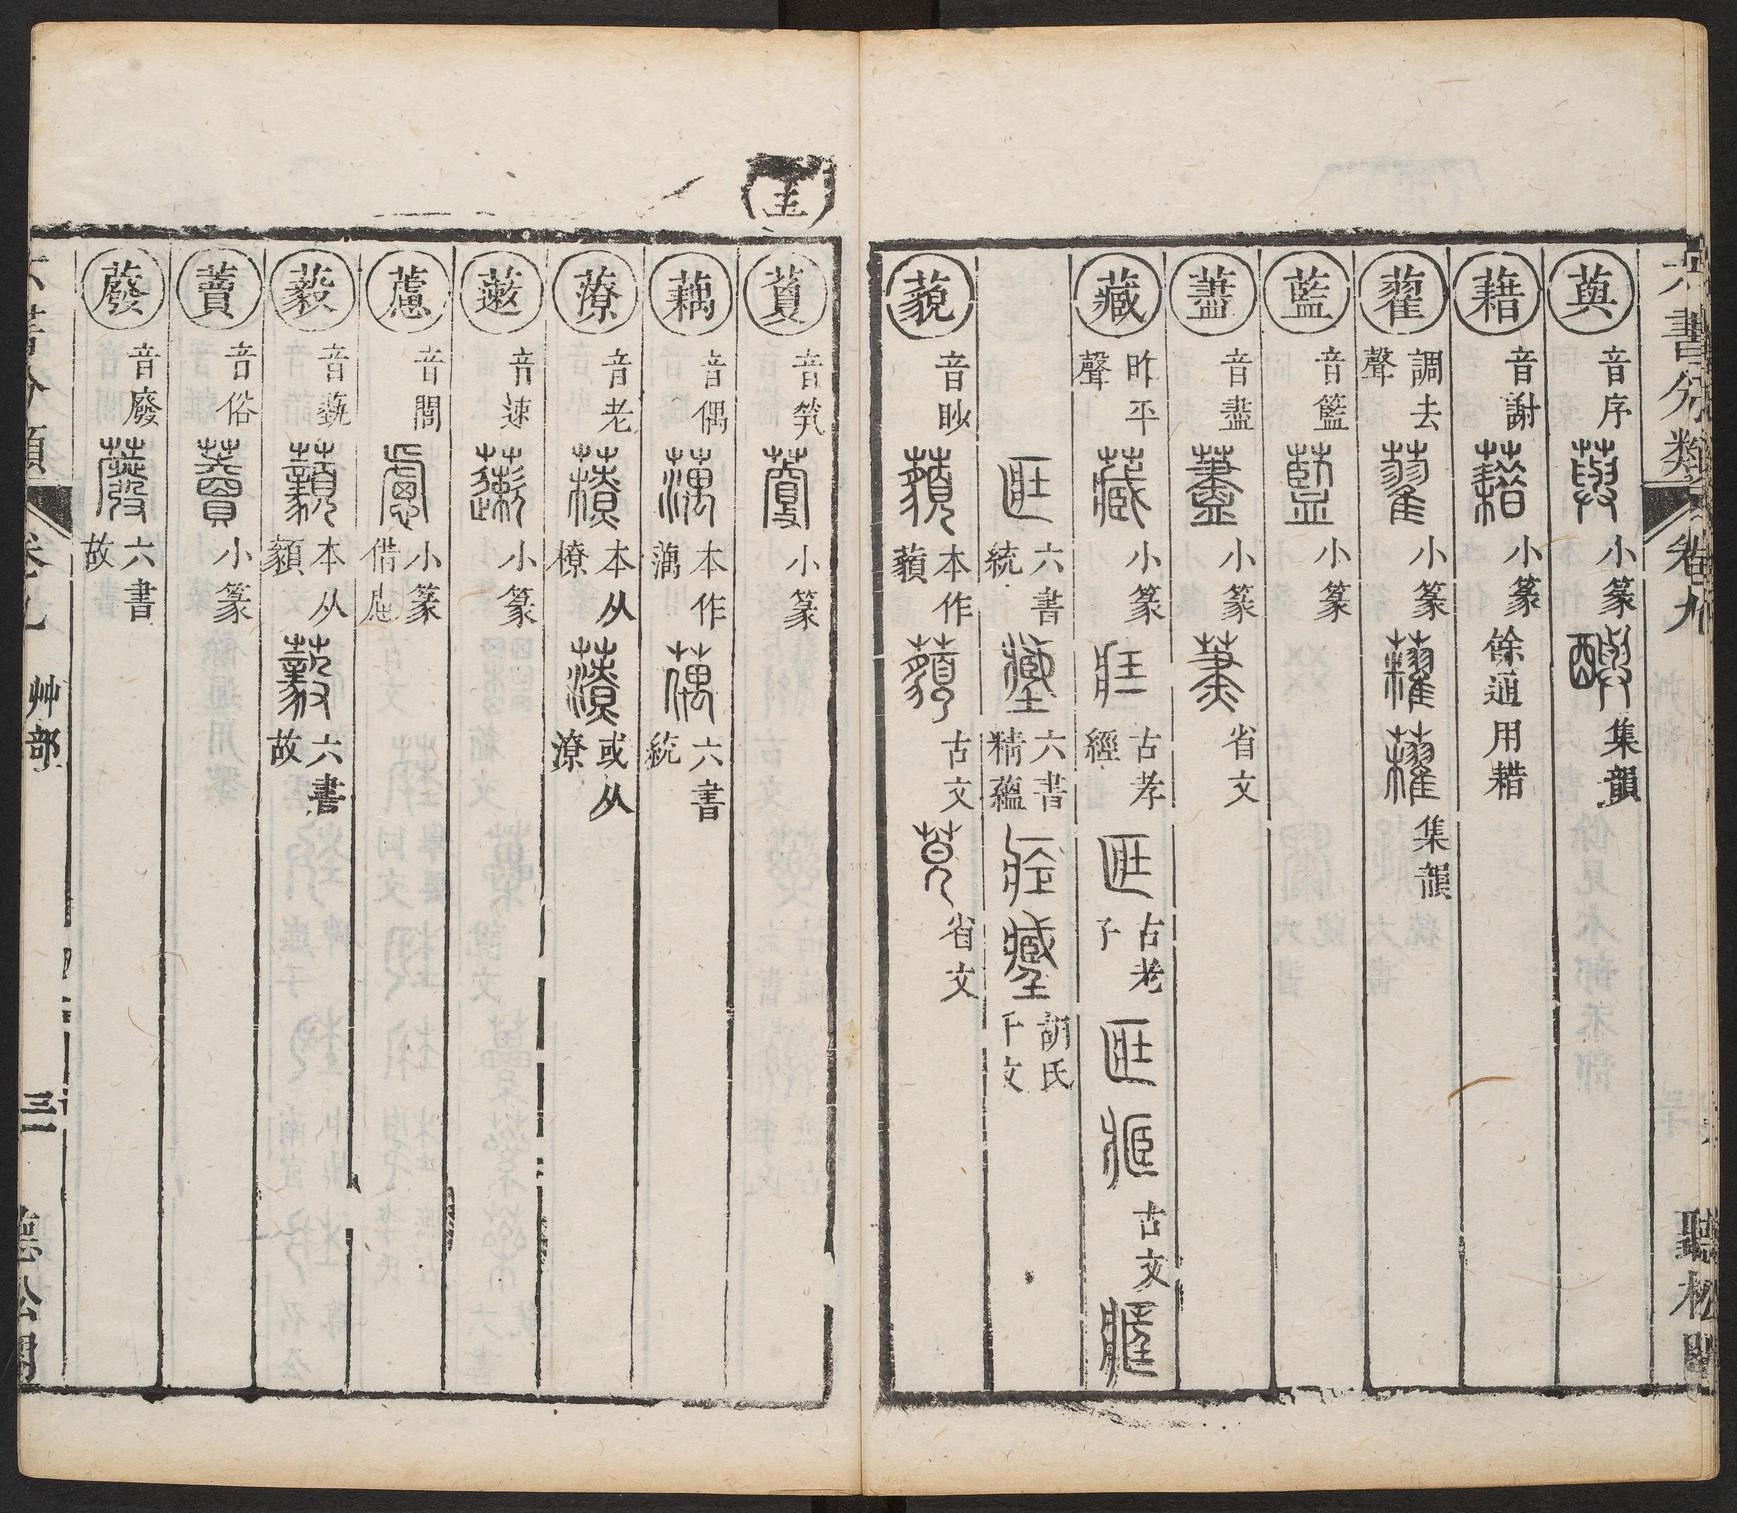 六書分類 卷九 聽松閣
藇 音序 小篆 集韻
藉 音謝 小篆 餘通用耤
藋 調去聲 小篆 集韻
藍 音籃 小篆
藎 音盡 小篆 省文
藏 昨平聲 小篆 古孝經 古老子 古文
六書統 六書精蘊 胡氏千文
藐 音眇 本作藐 古文 省文
音筑 小篆
藕 音偶 本作蕅 六書統
音老 本从橑 或从潦
藗 音速 小篆
藘 音閭 小篆 借
藙 音藙 本从 六書故
藚 音俗 小篆
蕟 音廢 六書故
六書分類 卷九 艸部 三 聽松閣